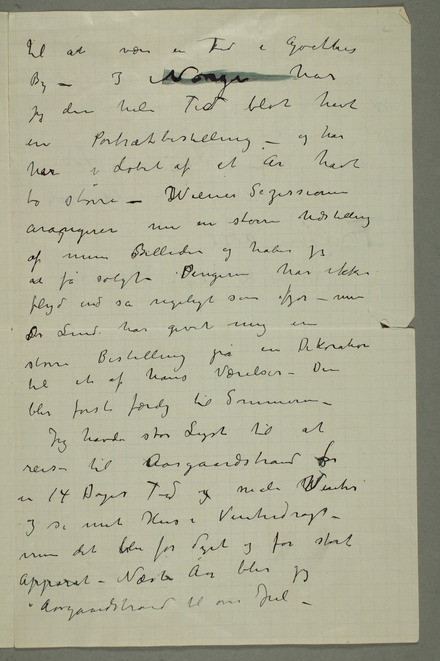 til at være en Tid i Goethes
By – I Norge har
jeg den hele Tid blot havt
en Portrætbestilling – og har
her i Løbet af et År havt
to større – Wiener Sezessionen
arangerer nu en større Udstilling
af mine Billeder og håber jeg
at få solgt. Pengene har ikke
flydt ind så rigeligt som ifjor – men
Dr Linde har givet mig en
større Bestilling på en Dekoration
til et af hans Værelser – Den
blir først færdig til Sommeren –
Jeg havde stor Lyst til at
reise til Aasgaardstrand for
en 14 Dages Tid og nyde Vinter
og se mit Hus i Vinterdragt –
men det blir for dyrt og for stort
Apparat – Næste Aar blir jeg
i Aasgaardstrand til over Jul –